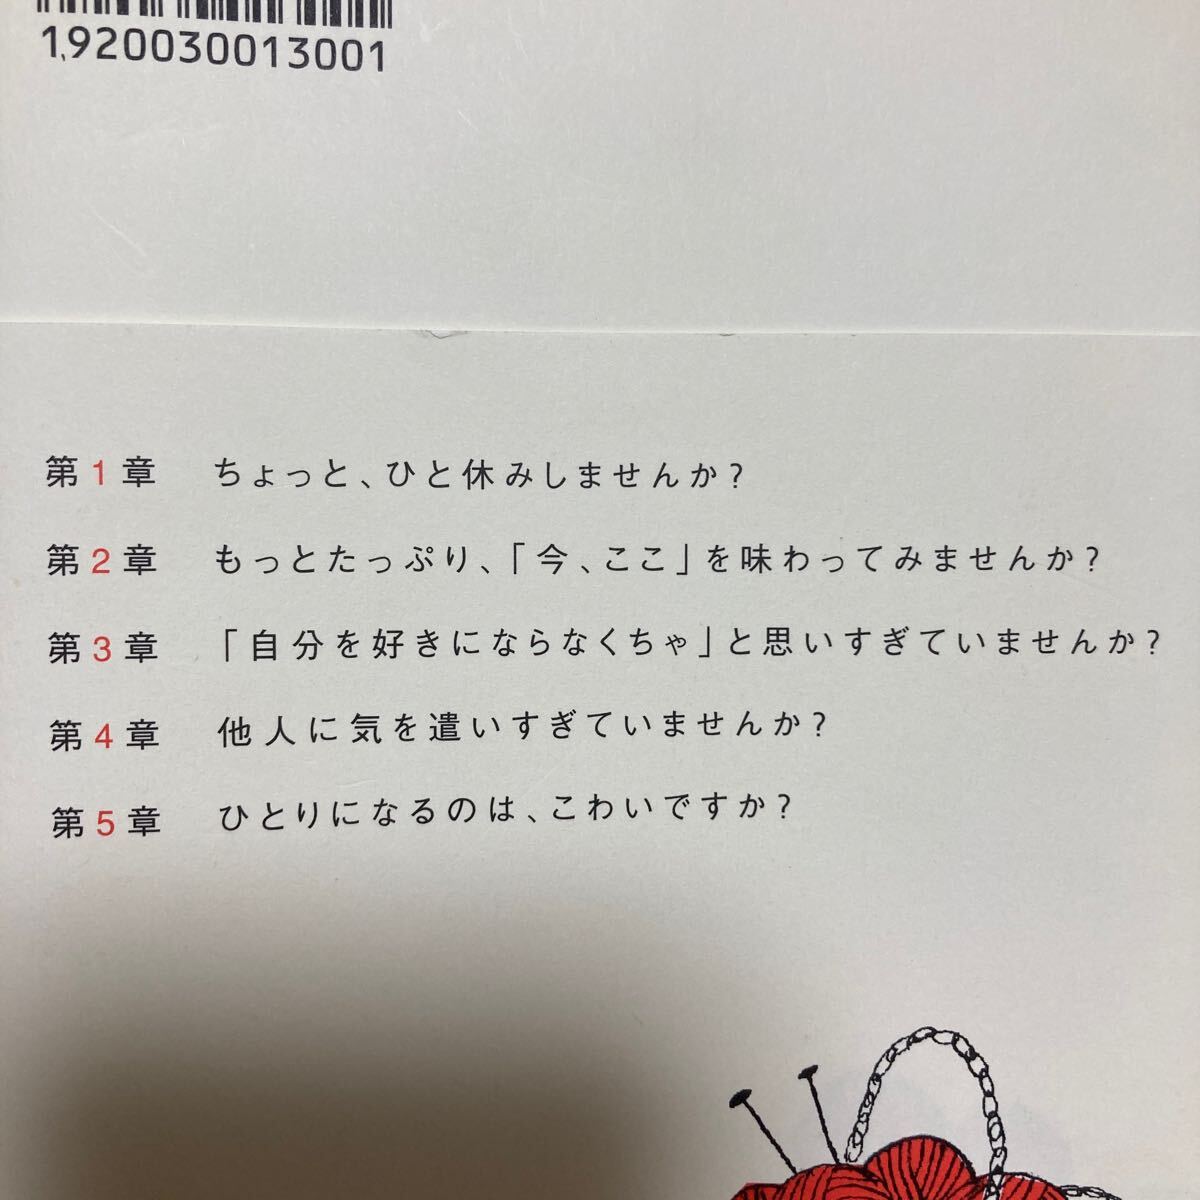 1,920030013001
第1章 ちょっと、ひと休みしませんか?
第2章 もっとたっぷり、「今、ここ」を味わってみませんか?
第3章 「自分を好きにならなくちゃ」と思いすぎていませんか?
第4章 他人に気を遣いすぎていませんか?
第5章 ひとりになるのは、こわいですか?